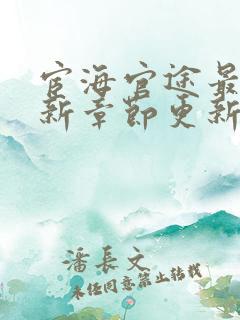 宦海官途最
新章節更新
潘長文
未任同意禁止转载